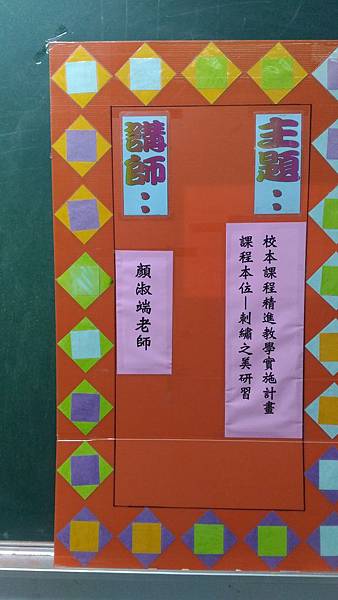 主題：
校本課程精進教學實施計畫
課程本位－刺繡之美研習
講師：
顏淑端老師